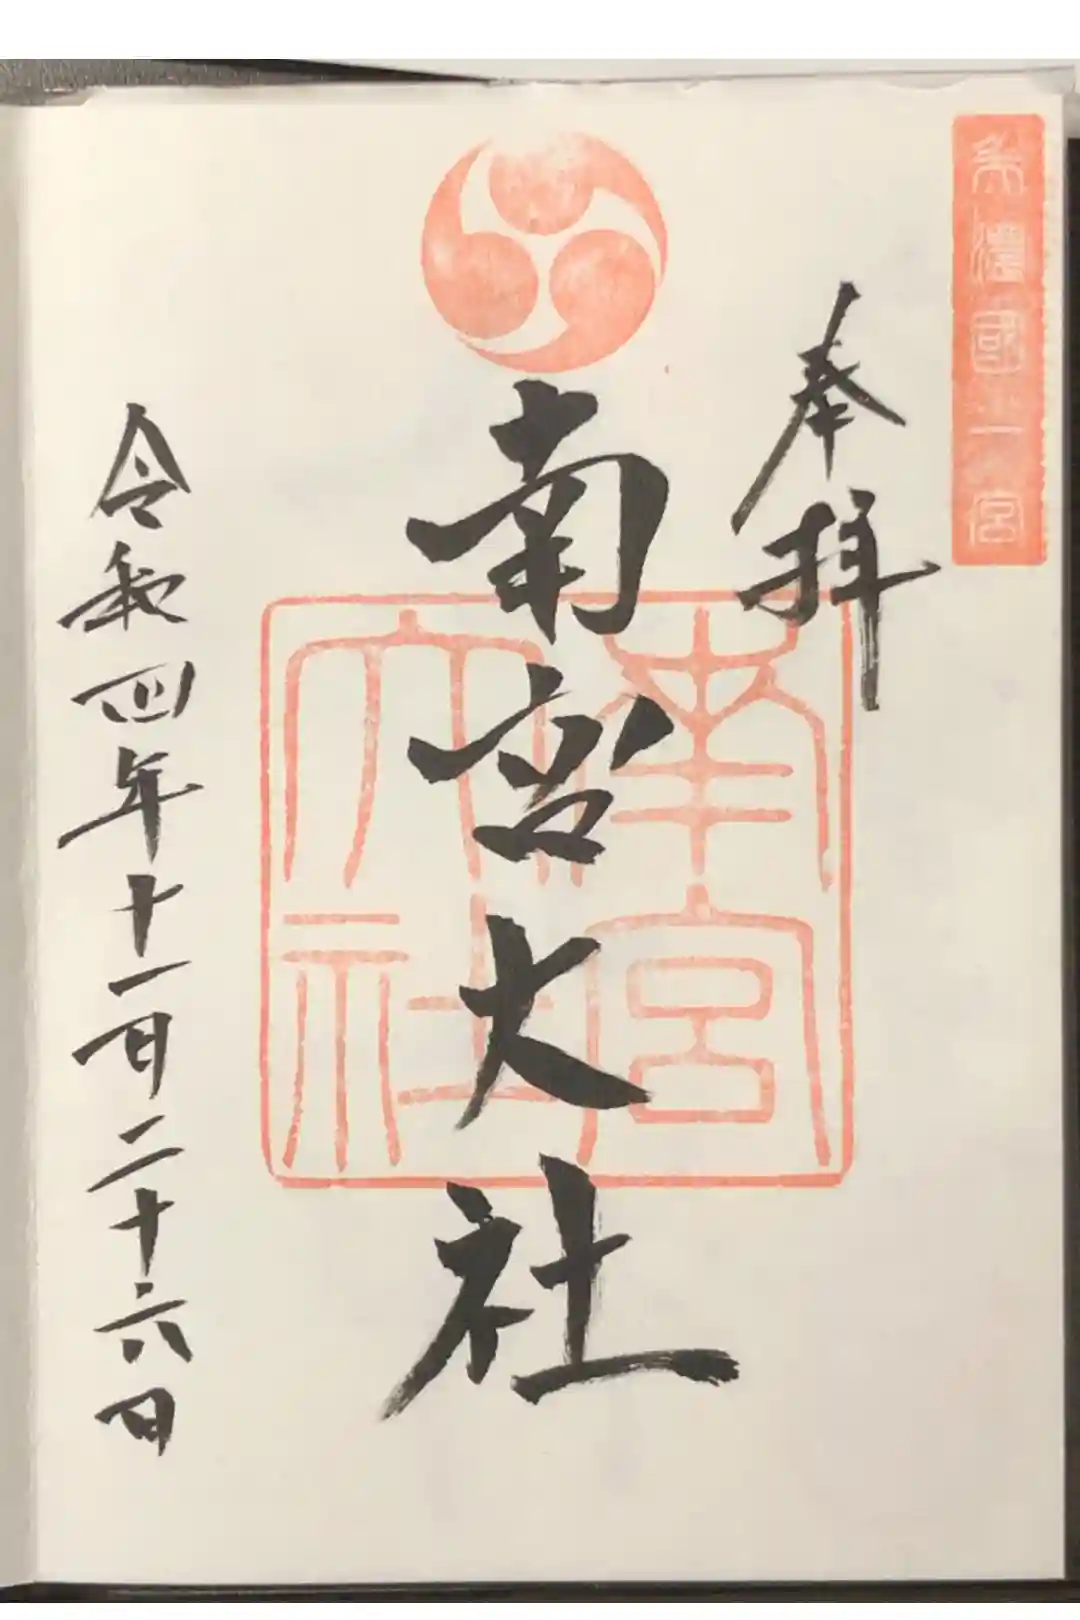 美濃國一宮
奉拝
南宮大社
南宮大社
令和四年十一月二十六日